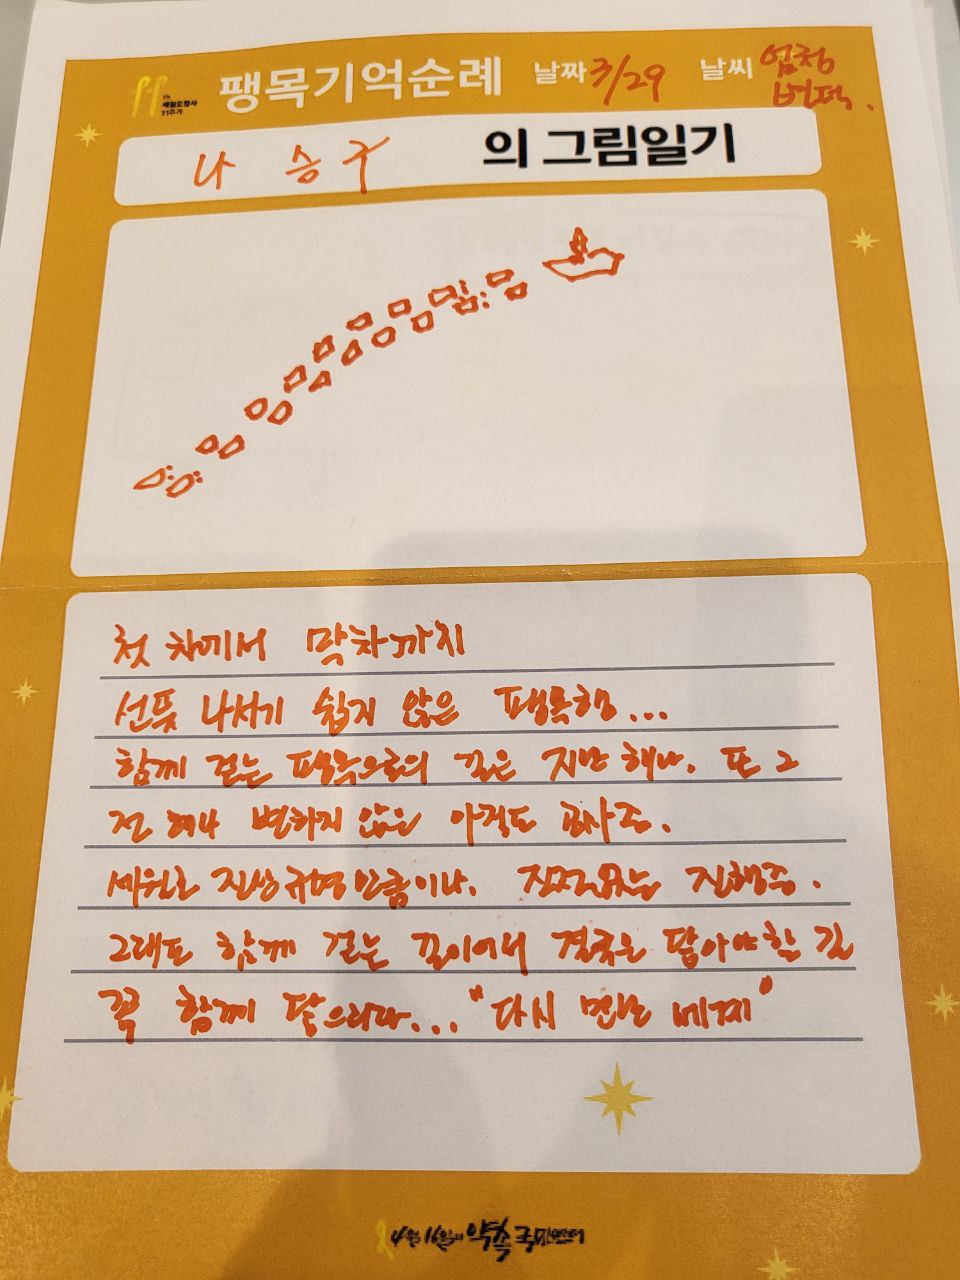 세월호참사
11주기
팽목기억순례 날짜 3/29 날씨 엄청
변덕.
나 승구 의 그림일기
첫 차에서 막차까지
선뜻 나서기 쉽지 않은 팽목행...
함께 걷는 팽목으로의 길은 지난 해나. 또 그
전 해나 변하지 않은 아직도 공사중.
세월호 진상규명만큼이나. 진행중.
그래도 함께 걷는 길이어서 결국은 닿아야할 길
꼭 함께 닿으리라... "다시 만난 세계"
4월16일의 약속 국민연대